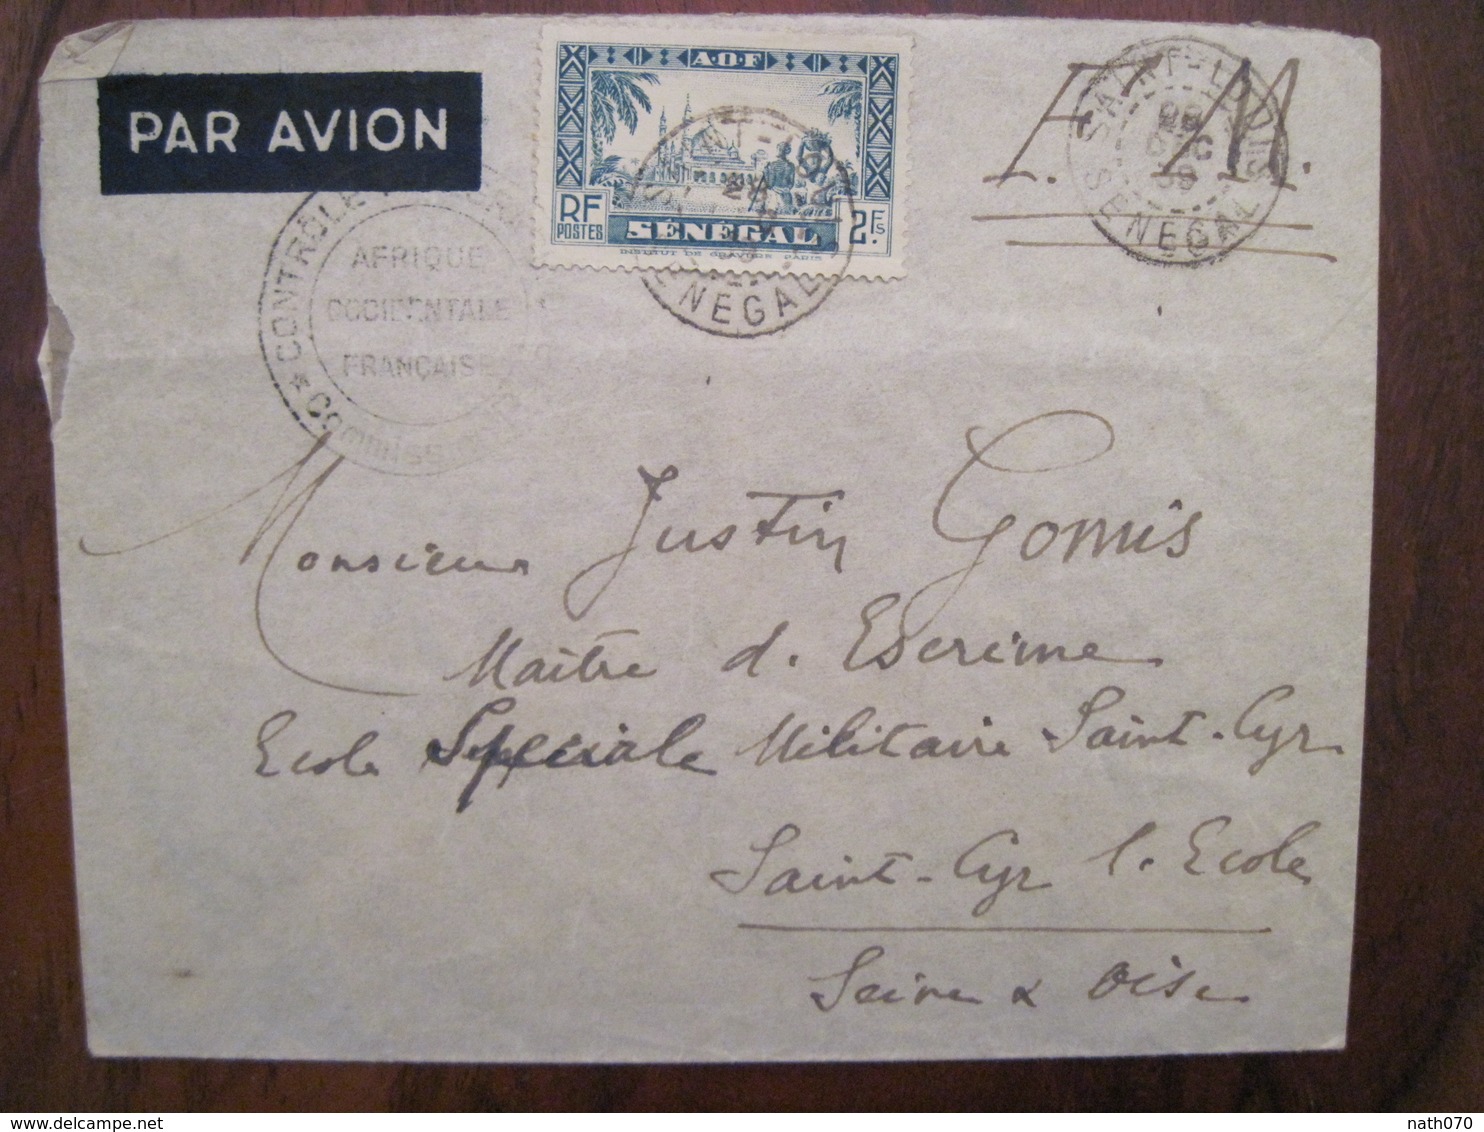 PAR AVION
A.O.F
RF
POSTES
SÉNÉGAL
2Fs.
INSTITUT DE GRAVURE PARIS
F. M.
SAINT-LOUIS
28
DEC
39
SENEGAL
SENEGAL
CONTRÔLE
AFRIQUE
OCCIDENTALE
FRANÇAISE
Monsieur Justin Gomis
Maître d. Escrime
Ecole Spéciale Militaire Saint-Cyr
Saint-Cyr l. Ecole
Seine & Oise
nath070
delcampe.net